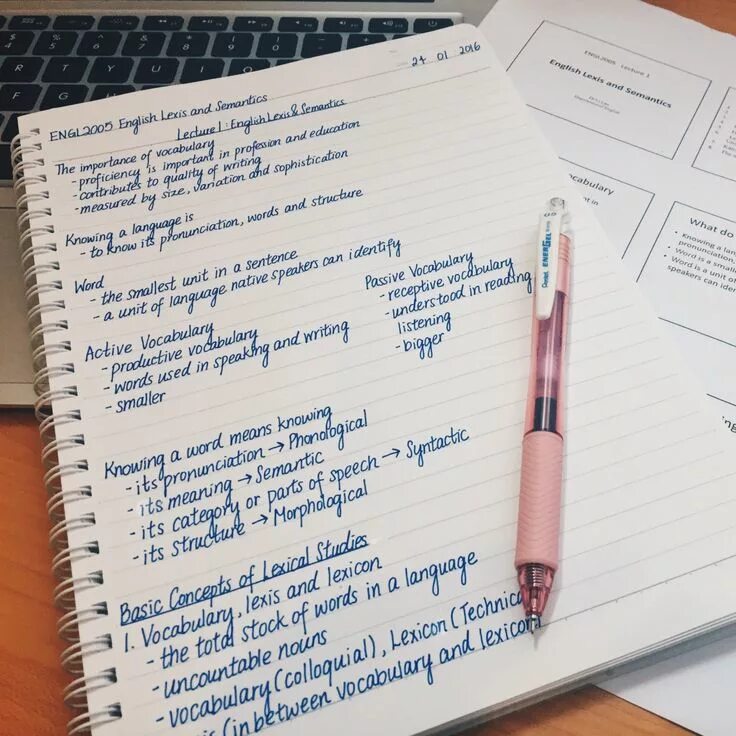 24 01 2016
ENGL2005 English Lexis and Semantics
Lecture 1: English Lexis & Semantics
The importance of vocabulary
- proficiency is important in profession and education
- contributes to quality of writing
- measured by size, variation and sophistication
Knowing a language is
- to know its pronunciation, words and structure
Word
- the smallest unit in a sentence
- a unit of language native speakers can identify
Active Vocabulary
- productive vocabulary
- words used in speaking and writing
- smaller
Passive Vocabulary
- receptive vocabulary
- understood in reading,
listening
- bigger
Knowing a word means knowing
- its pronunciation → Phonological
- its meaning → Semantic
- its category or parts of speech → Syntactic
- its structure → Morphological
Basic Concepts of Lexical Studies
1. Vocabulary, lexis and lexicon
- the total stock of words in a language
- uncountable nouns
- vocabulary (colloquial), Lexicon (Technica
(in between vocabulary and lexicon
Pentel ENERGEL 0.5
ENGL2005 Lecture 1
English Lexis and Semantics
ocabulary
nt in
What do
• Knowing a lan
pronunciation,
• Word is a small
• Word is a unit of
speakers can iden
4 5 6 7 8 9 0
R T Y U I O P
F G